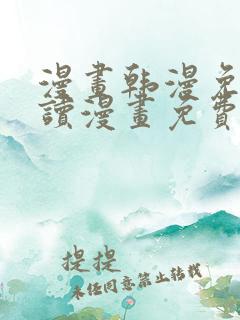 漫畫韩漫免
讀漫畫免費
提提
未经同意禁止转载